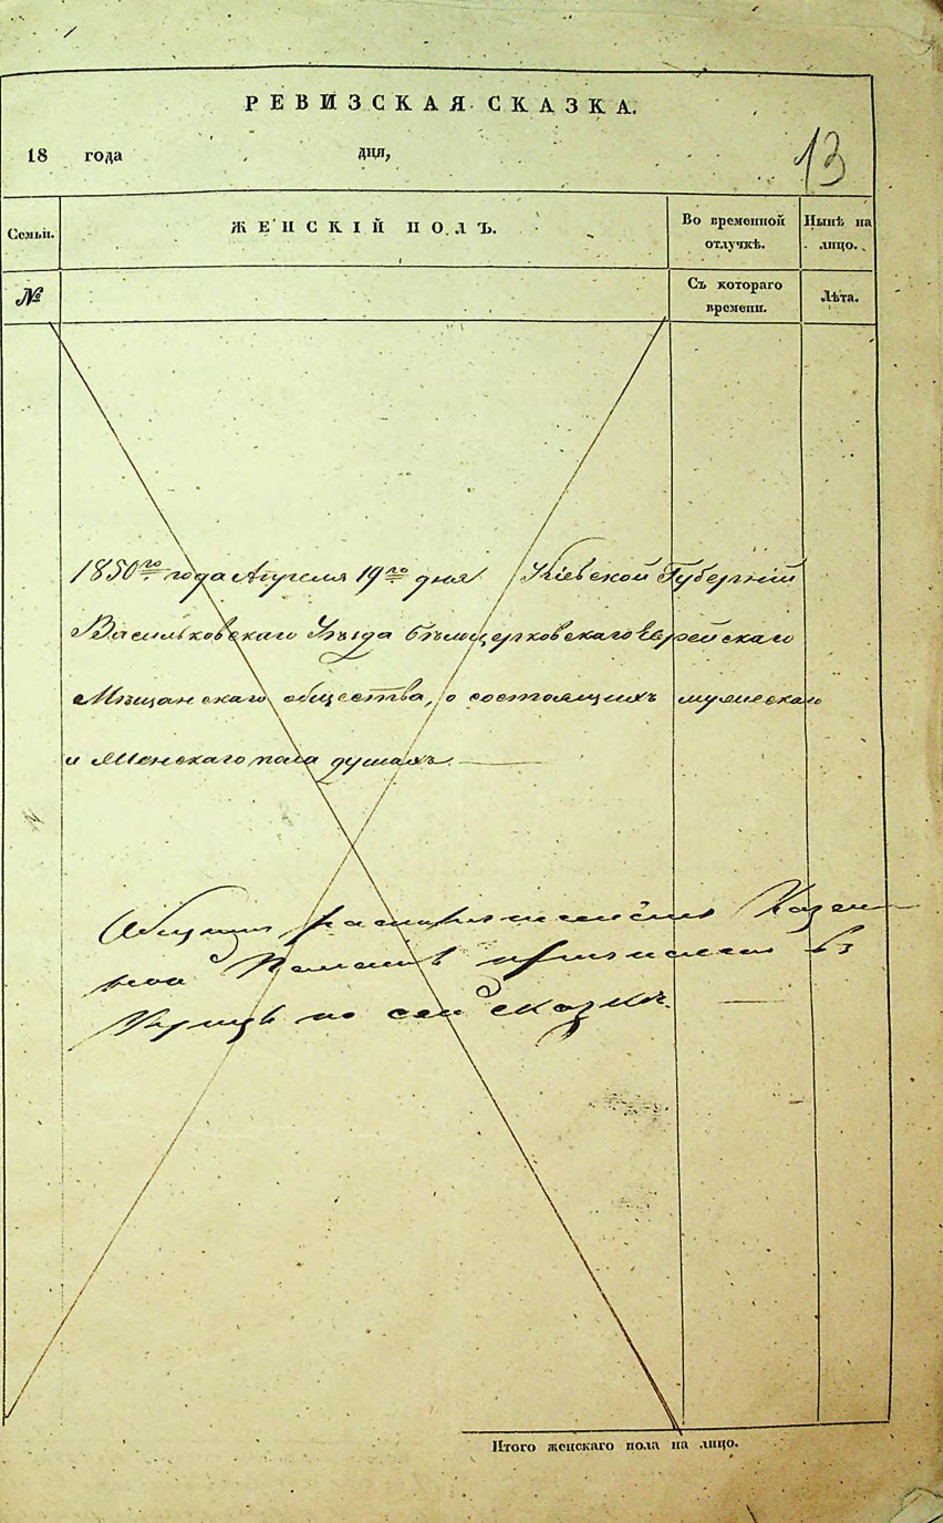 РЕВИЗСКАЯ СКАЗКА.
18 года дня,
13
Семьи.
ЖЕНСКІЙ ПОЛЪ.
Во временной отлучкѣ.
Нынѣ на лицо.
№
Съ котораго времени.
Лѣта.
1850го года Апреля 19го дня Кіевской Губерніи
Васильковскаго Уѣзда бѣлоцерковскаго Еврейскаго
Мѣщанскаго общества, о состоящихъ мужескаго
и Женскаго пола душахъ.
Казен-
ной Палаты
по сей сказкѣ.
Итого женскаго пола на лицо.